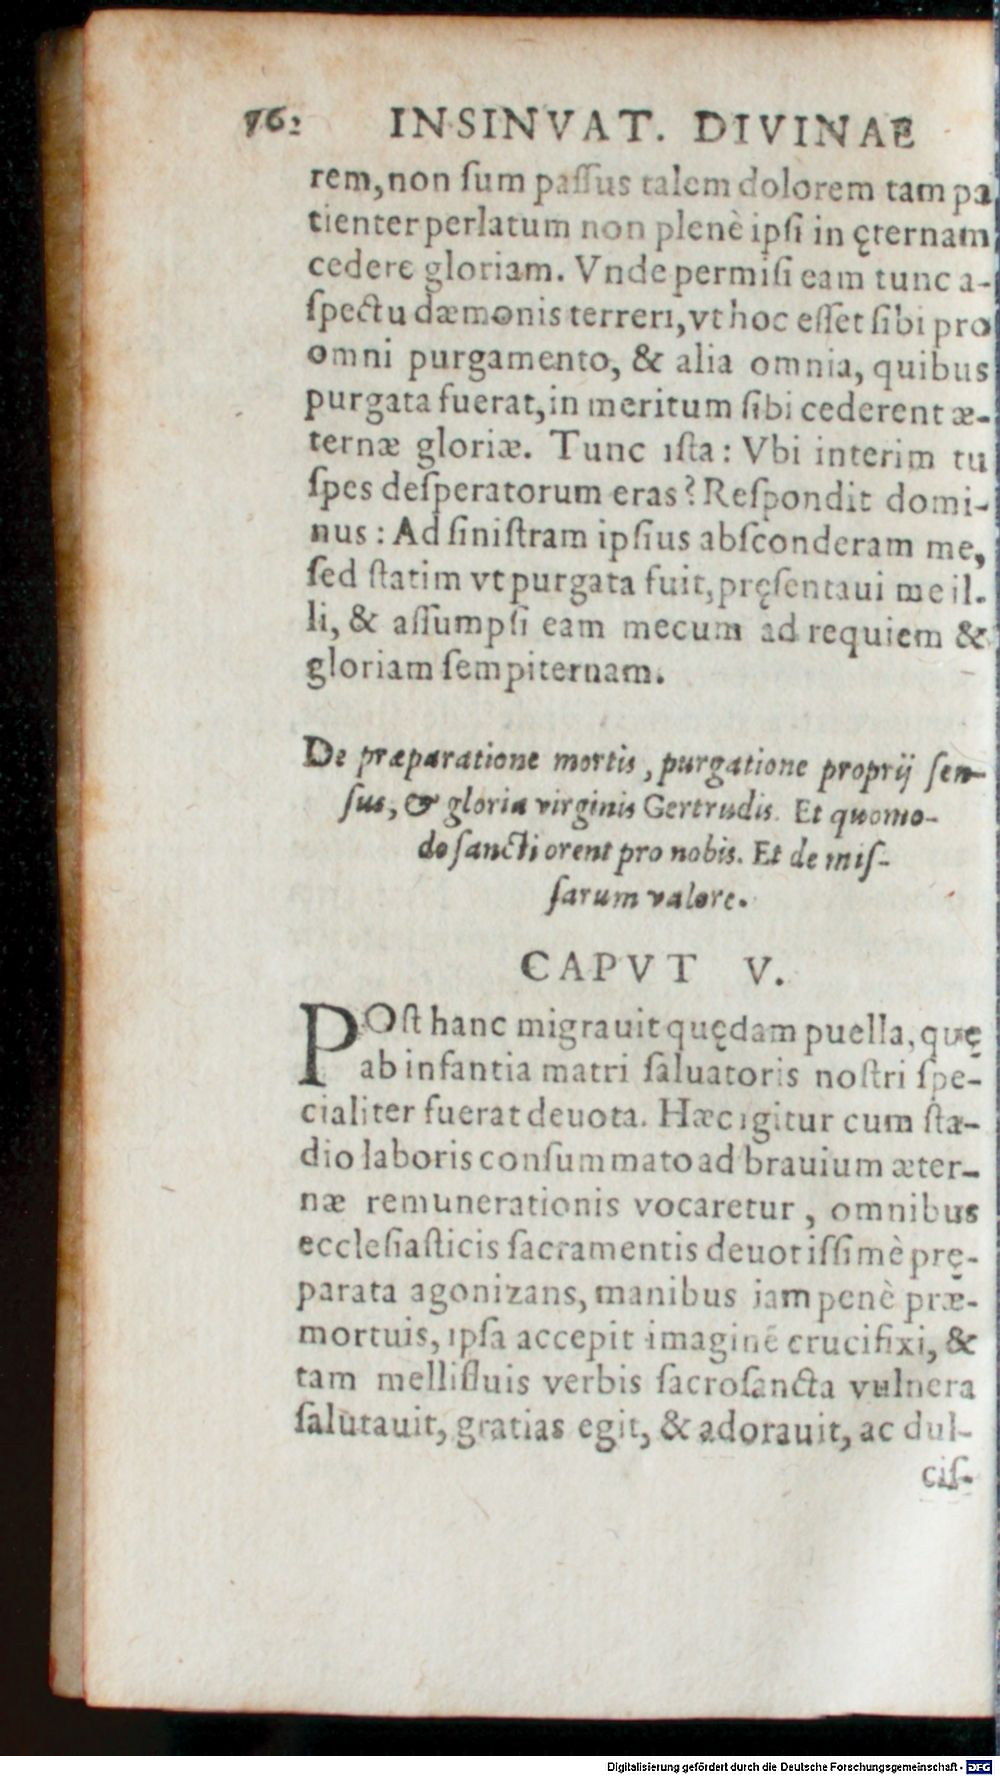 762 INSINVAT. DIVINAE
rem, non ſum paſſus talem dolorem tam pa
tienter perlatum non plenè ipſi in ęternam
cedere gloriam. Vnde permiſi eam tunc a-
ſpectu dæmonis terreri, vt hoc eſſet ſibi pro
omni purgamento, & alia omnia, quibus
purgata fuerat, in meritum ſibi cederent æ-
ternæ gloriæ. Tunc iſta: Vbi interim tu
ſpes deſperatorum eras? Reſpondit domi-
nus: Ad ſiniſtram ipſius abſconderam me,
ſed ſtatim vt purgata fuit, pręſentaui me il-
li, & aſſumpſi eam mecum ad requiem &
gloriam ſempiternam.
De præparatione mortis, purgatione proprij ſen-
ſus, & gloria virginis Gertrudis. Et quomo-
do ſancti orent pro nobis. Et de miſ-
ſarum valore.
CAPVT V.
POſt hanc migrauit quędam puella, quę
ab infantia matri ſaluatoris noſtri ſpe-
cialiter fuerat deuota. Hæc igitur cum ſta-
dio laboris conſummato ad brauium æter-
næ remunerationis vocaretur, omnibus
eccleſiaſticis ſacramentis deuotiſſimè prę-
parata agonizans, manibus iam penè præ-
mortuis, ipſa accepit imaginē crucifixi, &
tam mellifluis verbis ſacroſancta vulnera
ſalutauit, gratias egit, & adorauit, ac dul-
ciſ-
Digitalisierung gefördert durch die Deutsche Forschungsgemeinschaft - DFG